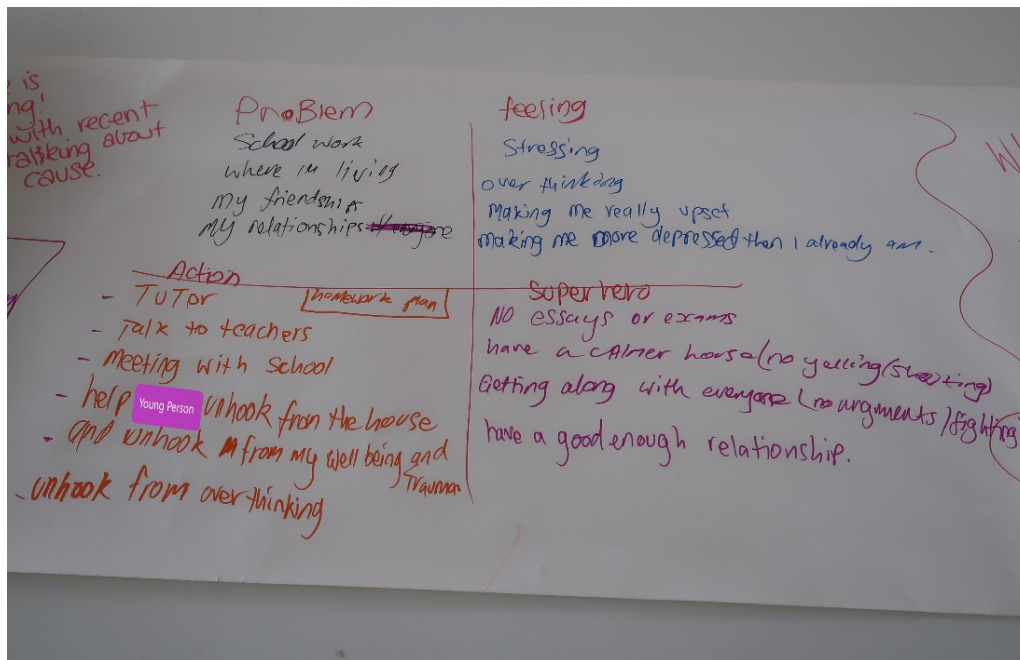 is
ng!
with recent
talking about
cause.
PRoBlem
School work
where im living
my friendships
my relationships
feeling
Stressing
over thinking
Making me really upset
Making me more depressed then I already am.
Action
- TuTor
homework plan
- Talk to teachers
- Meeting with School
- help Young Person unhook from the house
- and unhook from my well being and
Trauma
- unhook from over thinking
Superhero
NO essays or exams
have a calmer house (no yelling/shooting)
Getting along with everyone (no argments/fighting)
have a good enough relationship.